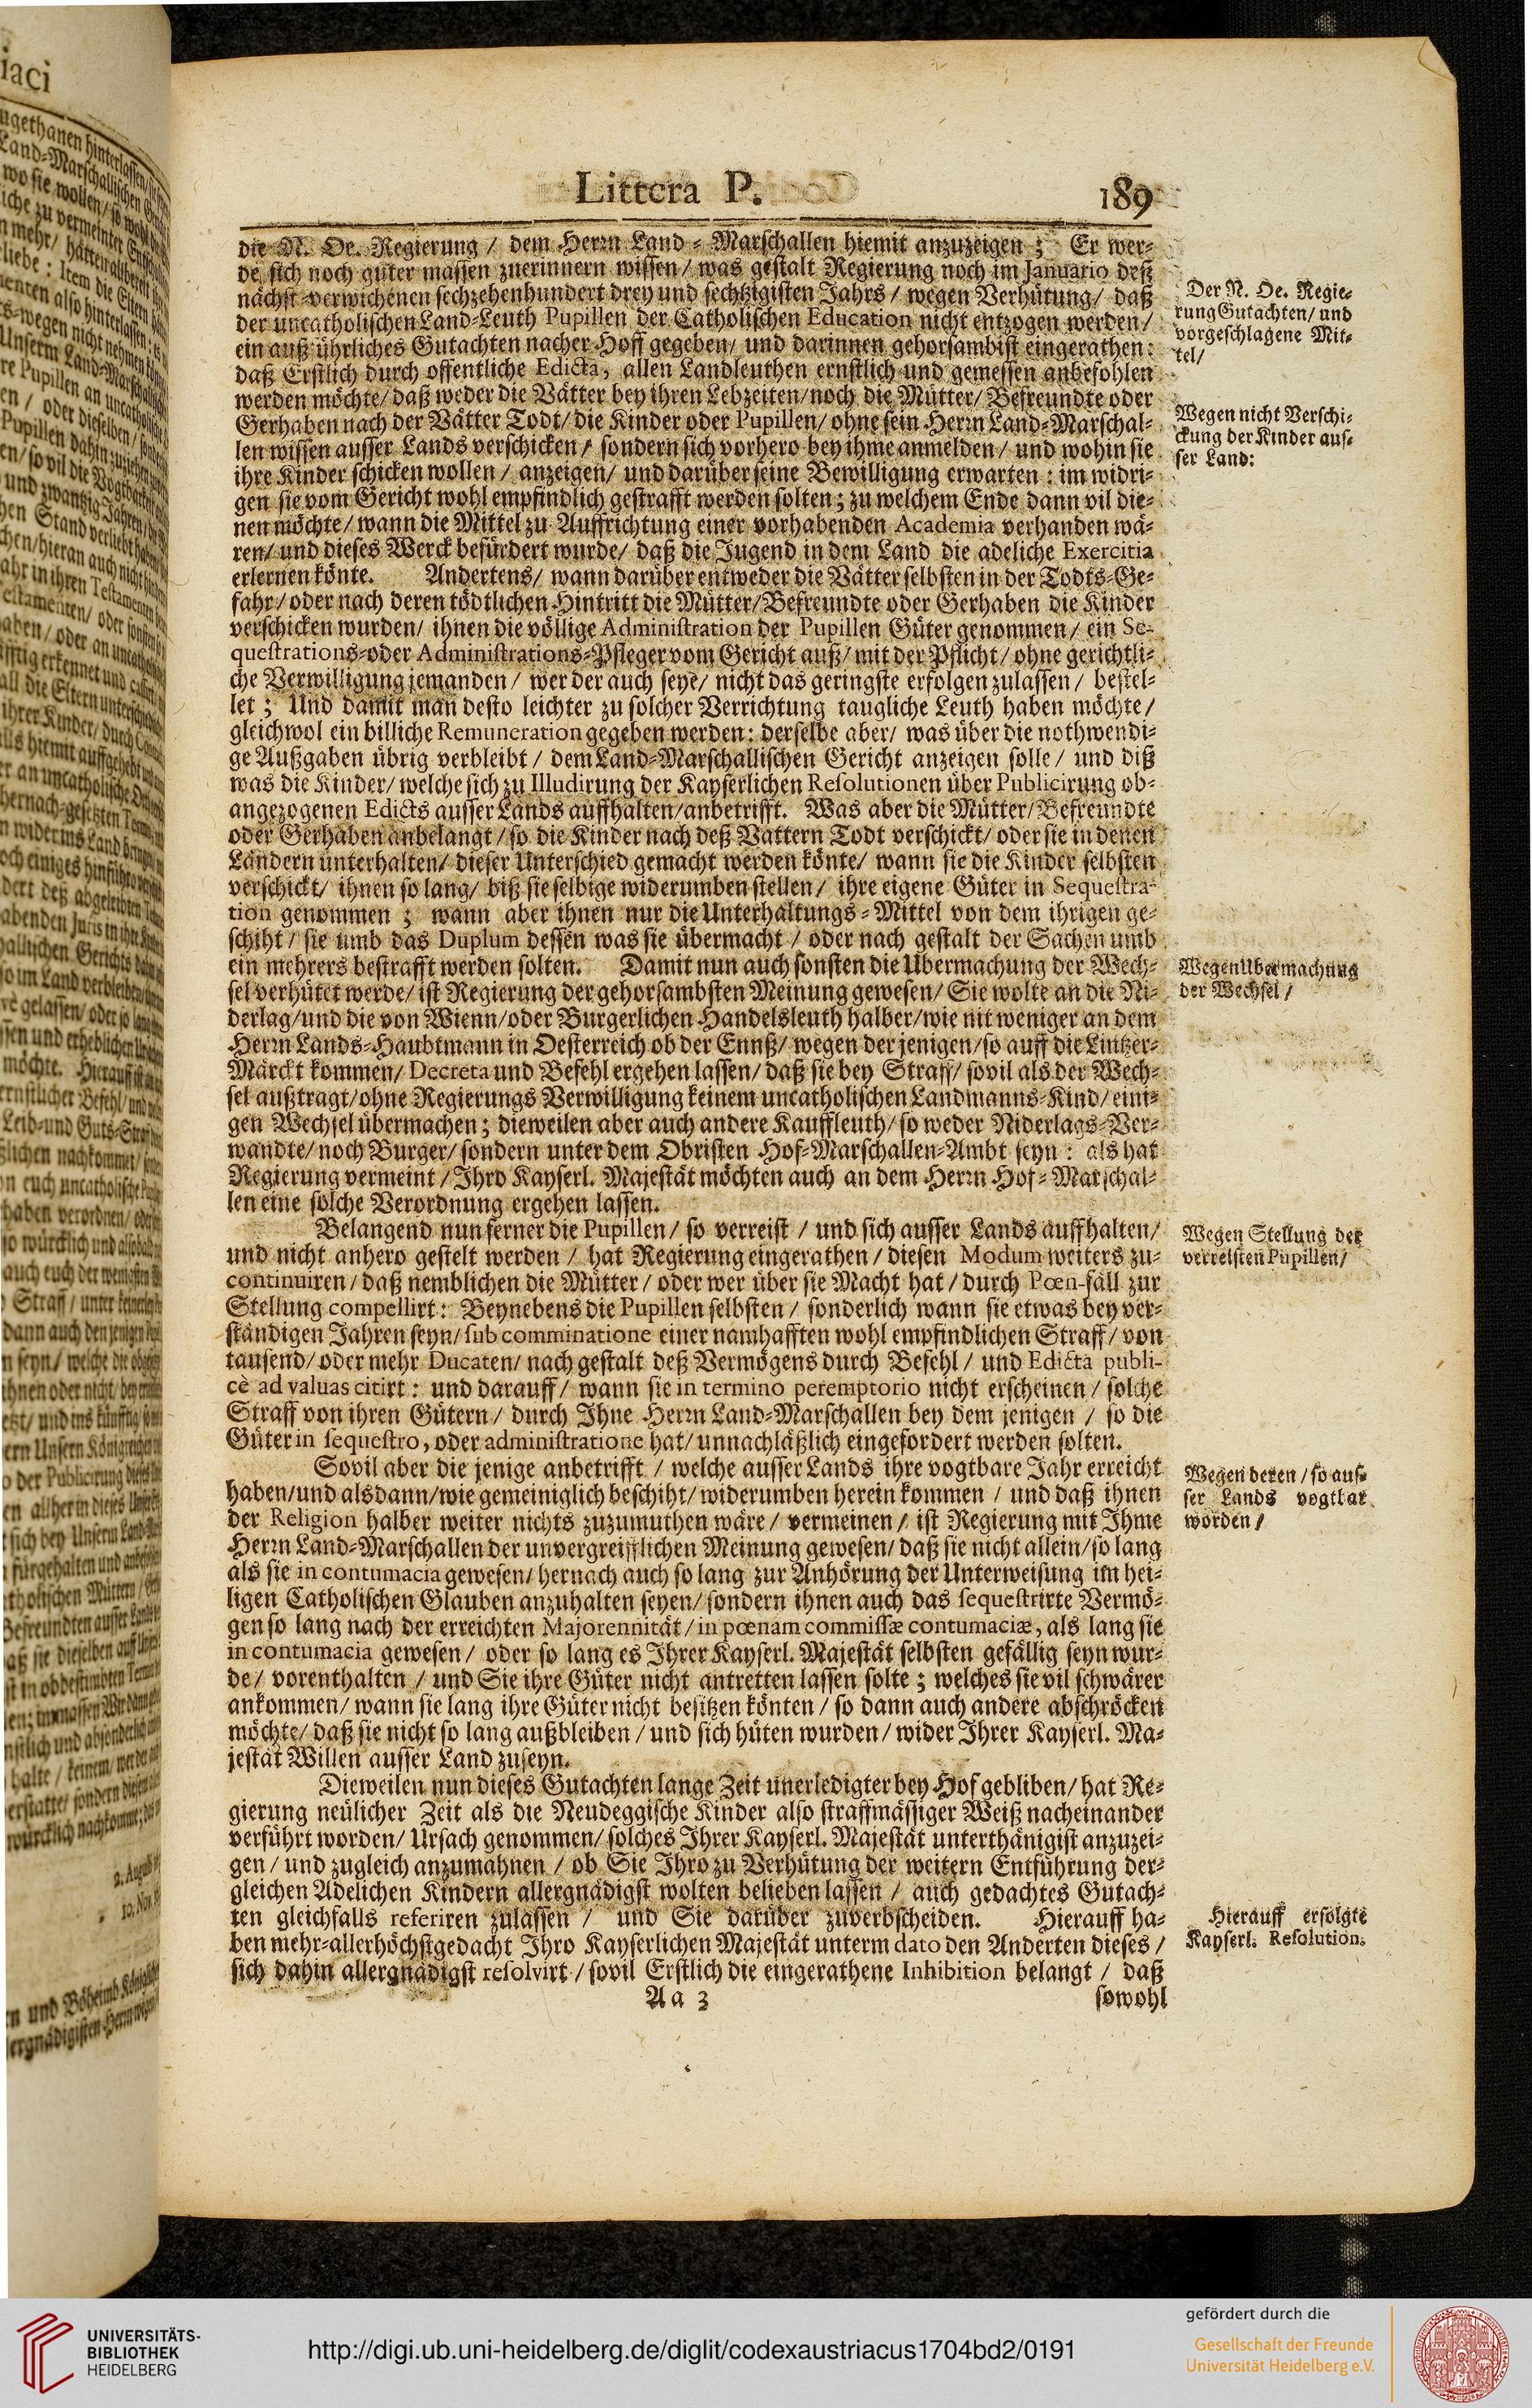 Littera P. 189
die N. Oe. Regierung / dem Herrn Land-Marschallen hiemit anzuzeigen; Er wer-
de sich noch guter massen zuerinnern wissen / was gestalt Regierung noch im Januario deß
nächst-verwichenen sechzehenhundert drey und sechtzigisten Jahrs / wegen Verhütung / daß
der uncatholischen Land-Leuth Pupillen der Catholischen Education nicht entzogen werden /
ein außführliches Gutachten nacher Hoff gegeben / und darinnen gehorsambist eingerathen:
daß Erstlich durch offentliche Edicta, allen Landleuthen ernstlich und gemessen anbefohlen
werden möchte / daß weder die Vätter bey ihren Lebzeiten / noch die Mütter / Befreundte oder
Gerhaben nach der Vätter Todt / die Kinder oder Pupillen / ohne sein Herrn Land-Marschal-
len wissen ausser Lands verschicken / sondern sich vorhero bey ihme anmelden / und wohin sie
ihre Kinder schicken wollen / anzeigen / und darüber seine Bewilligung erwarten: im widri-
gen sie vom Gericht wohl empfindlich gestrafft werden solten; zu welchem Ende dann vil die-
nen möchte / wann die Mittel zu Auffrichtung einer vorhabenden Academia verhanden wä-
ren / und dieses Werck befürdert wurde / daß die Jugend in dem Land die adeliche Exercitia
erlernen könte. Andertens / wann darüber entweder die Vätter selbsten in der Todts-Ge-
fahr / oder nach deren tödtlichen Hintritt die Mütter / Befreundte oder Gerhaben die Kinder
verschicken wurden / ihnen die völlige Administration der Pupillen Güter genommen / ein Se-
questrations-oder Administrations-Pfleger vom Gericht auß / mit der Pflicht / ohne gerichtli-
che Verwilligung jemanden / wer der auch seye / nicht das geringste erfolgen zulassen / bestel-
let; Und damit man desto leichter zu solcher Verrichtung taugliche Leuth haben möchte /
gleichwol ein billiche Remuneration gegeben werden: derselbe aber / was über die nothwendi-
ge Außgaben übrig verbleibt / dem Land-Marschallischen Gericht anzeigen solle / und diß
was die Kinder / welche sich zu Illudirung der Kayserlichen Resolutionen über Publicirung ob-
angezogenen Edicts ausser Lands auffhalten / anbetrifft. Was aber die Mütter / Befreundte
oder Gerhaben anbelangt / so die Kinder nach deß Vattern Todt verschickt / oder sie in denen
Ländern unterhalten / dieser Unterschied gemacht werden könte / wann sie die Kinder selbsten
verschickt / ihnen so lang / biß sie selbige widerumben stellen / ihre eigene Güter in Sequestra-
tion genommen; wann aber ihnen nur die Unterhaltungs-Mittel von dem ihrigen ge-
schiht / sie umb das Duplum dessen was sie übermacht / oder nach gestalt der Sachen umb
ein mehrers bestrafft werden solten. Damit nun auch sonsten die Ubermachung der Wech-
sel verhütet werde / ist Regierung der gehorsambsten Meinung gewesen / Sie wolte an die Ni-
derlag / und die von Wienn / oder Burgerlichen Handelsleuth halber / wie nit weniger an dem
Herrn Lands-Haubtmann in Oesterreich ob der Ennß / wegen der jenigen / so auff die Lintzer-
Märckt kommen / Decreta und Befehl ergehen lassen / daß sie bey Straff / sovil als der Wech-
sel außtragt / ohne Regierungs Verwilligung keinem uncatholischen Landmanns-Kind / eini-
gen Wechsel übermachen; dieweilen aber auch andere Kauffleuth / so weder Niderlags-Ver-
wandte / noch Burger / sondern unter dem Obristen Hof-Marschallen-Ambt seyn: als hat
Regierung vermeint / Ihro Kayserl. Majestät möchten auch an dem Herrn Hof-Marschal-
len eine solche Verordnung ergehen lassen.
Belangend nun ferner die Pupillen / so verreist / und sich ausser Lands auffhalten /
und nicht anhero gestelt werden / hat Regierung eingerathen / diesen Modum weiters zu-
continuiren / daß nemblichen die Mütter / oder wer über sie Macht hat / durch Pœn-fäll zur
Stellung compellirt: Beynebens die Pupillen selbsten / sonderlich wann sie etwas bey ver-
ständigen Jahren seyn / sub comminatione einer namhafften wohl empfindlichen Straff / von
tausend / oder mehr Ducaten / nach gestalt deß Vermögens durch Befehl / und Edicta publi-
cè ad valuas citirt: und darauff / wann sie in termino peremptorio nicht erscheinen / solche
Straff von ihren Gütern / durch Ihne Herrn Land-Marschallen bey dem jenigen / so die
Güter in sequestro, oder administratione hat / unnachläßlich eingefordert werden solten.
Sovil aber die jenige anbetrifft / welche ausser Lands ihre vogtbare Jahr erreicht
haben / und alsdann / wie gemeiniglich beschiht / widerumben herein kommen / und daß ihnen
der Religion halber weiter nichts zuzumuthen wäre / vermeinen / ist Regierung mit Ihme
Herrn Land-Marschallen der unvergreifflichen Meinung gewesen / daß sie nicht allein / so lang
als sie in contumacia gewesen / hernach auch so lang zur Anhörung der Unterweisung im hei-
ligen Catholischen Glauben anzuhalten seyen / sondern ihnen auch das sequestrirte Vermö-
gen so lang nach der erreichten Majorennität / in pœnam commissæ contumaciæ, als lang sie
in contumacia gewesen / oder so lang es Ihrer Kayserl. Majestät selbsten gefällig seyn wur-
de / vorenthalten / und Sie ihre Güter nicht antretten lassen solte; welches sie vil schwärer
ankommen / wann sie lang ihre Güter nicht besitzen könten / so dann auch andere abschröcken
möchte / daß sie nicht so lang außbleiben / und sich hüten wurden / wider Ihrer Kayserl. Ma-
jestät Willen ausser Land zuseyn.
Dieweilen nun dieses Gutachten lange Zeit unerledigter bey Hof gebliben / hat Re-
gierung neulicher Zeit als die Neudeggische Kinder also straffmässiger Weiß nacheinander
verführt worden / Ursach genommen / solches Ihrer Kayserl. Majestät unterthänigist anzuzei-
gen / und zugleich anzumahnen / ob Sie Ihro zu Verhütung der weitern Entführung der-
gleichen Adelichen Kindern allergnädigst wolten belieben lassen / auch gedachtes Gutach-
ten gleichfalls referiren zulassen / und Sie darüber zuverbscheiden. Hierauff ha-
ben mehr-allerhöchstgedacht Ihro Kayserlichen Majestät unterm dato den Anderten dieses /
sich dahin allergnädigst resolvirt / sovil Erstlich die eingerathene Inhibition belangt / daß
Aa 3 sowohl
Der N. Oe. Regie-
rung Gutachten / und
vorgeschlagene Mit-
tel /
Wegen nicht Verschi-
ckung der Kinder aus-
ser Land:
Wegen Ubermachung
der Wechsel /
Wegen Stellung der
verreisten Pupillen /
Wegen deren / so aus-
ser Lands vogtbar
worden /
Hierauff erfolgte
Kayserl. Resolution.
UNIVERSITÄTS-
BIBLIOTHEK
HEIDELBERG
http://digi.ub.uni-heidelberg.de/diglit/codexaustriacus1704bd2/0191
gefördert durch die
Gesellschaft der Freunde
Universität Heidelberg e.V.